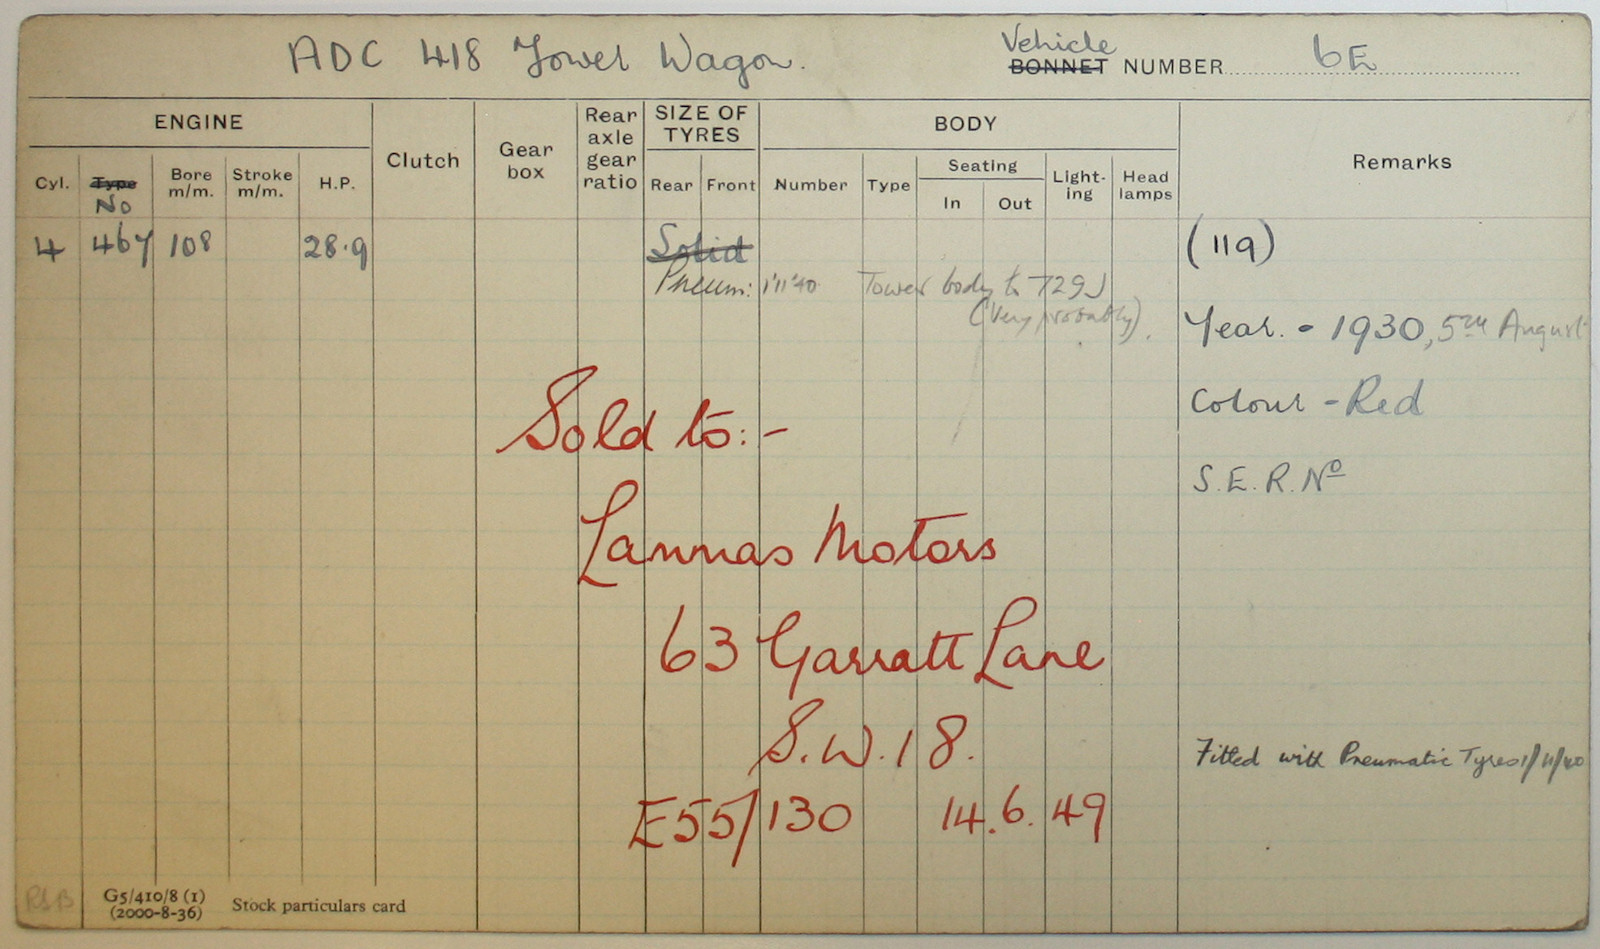 ADC 418 Tower Wagon.
Vehicle
BONNET NUMBER 6E
ENGINE
Clutch
Gear box
Rear axle gear ratio
SIZE OF TYRES
BODY
Remarks
Cyl.
Type
No
Bore m/m.
Stroke m/m.
H.P.
Rear
Front
Number
Type
Seating
In
Out
Light-ing
Head lamps
4 467 108 28.9 Solid (119)
Pneum: 1'11'40 Tower body to 729J
(Very probably).
Year. - 1930, 5TH August
Colour - Red
Sold to:-
S.E.R. No
Lannas Motors
63 Garratt Lane
S.W.18.
Fitted with Pneumatic Tyres 1/11/40
E55/130 14.6.49
G5/410/8 (1)
(2000-8-36)
Stock particulars card